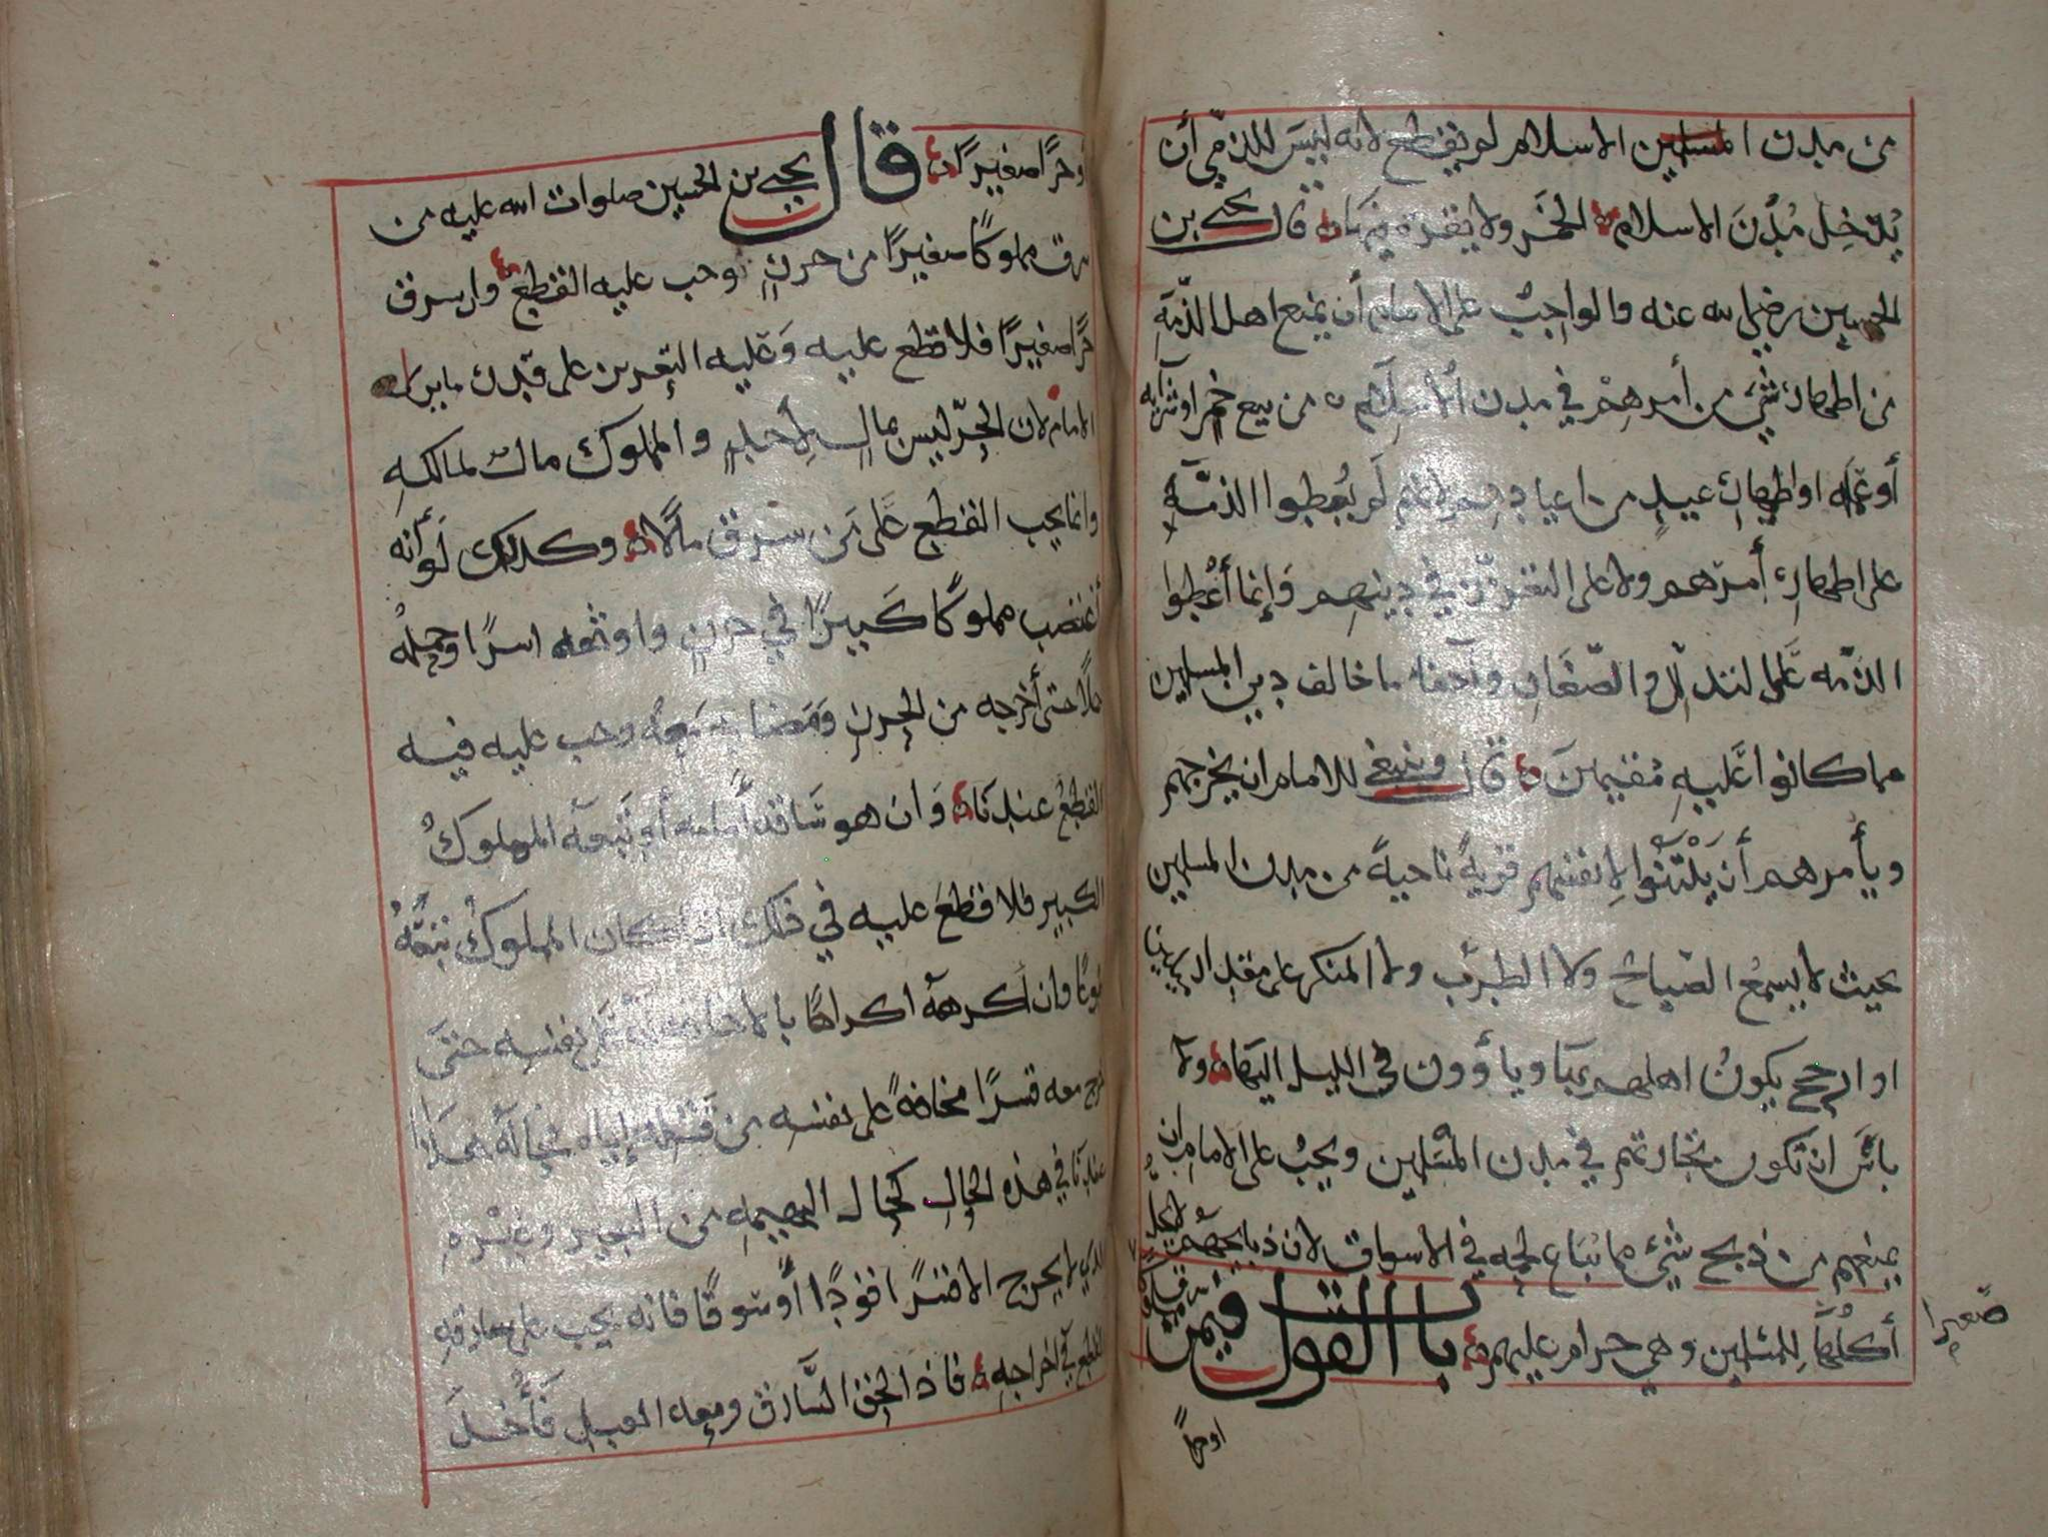 من مدن المسلمين الاسلام لم يقطع لانه ليس للذمي أن
يُدخِل مُدُنَ الاسلام الخمر ولا يقره فيها قال يحيى بن
الحسين رضي الله عنه والواجبُ على الامام أن يمنع اهل الذمة
من اظهار شيء من أمرهم في مدن الاسلام من بيع خمر او شرابه
أو عمله او اظهار عيدٍ من اعيادهم لانهم لم يُعطوا الذمة
على اظهار أمرهم ولا على التقرر في دينهم وإنما أُعْطوا
الذمه على التذلل والصّغار وإخفاء ما خالف دين المسلمين
مما كانوا عَليهِ مُقيمينَ قال وينبغي للامام ان يخرجهم
ويأمرهم أن يَبْتَنُوا لانفسهم قريةً ناحيةً من مدن المسلمين
بحيث لا يسمعُ الصياح ولا الطرب ولا المنكر على مقدار بريد
او ارجح يكونُ اهلهم بها ويأوون في الليل اليها ولا
باس ان تكون تجارتهم في مدن المسلمين ويجبُ على الامام ان
يمنعهم من ذبح شيء مما يُباع لحمه في الاسواق لان ذبايحهم لا يحل
أكلُها لِلمسلمين وهي حرام عليهم باب القول فيمن
سرق مملوكا
صغيرا
او حرا
أو حرًا صغيرًا قال يحيى بن الحسين صلوات الله عليه من
سرق مملوكًا صغيرًا من حرزٍ وجب عليه القطع وان سرق
حرًا صغيرًا فلا قطع عليه وَعليه التعزير على قدر ما يراه
الامام لان الحرّ ليس بمالٍ لِأحدٍ والمملوك مال لمالكهِ
وانما يجب القطع عَلى مَن سرق مالًا وكذلك لَو أنه
أغتصب مملوكًا كَبيرًا في حرزٍ واوثقه اسرًا وحمله
حملًا حتى أخرجه من الحرزِ وَمضا به معه وجب عليه فيه
القطعُ عندنا وَان هو سَاقه أمامه أو تبعه المملوكُ
الكبير فلا قطعَ عليه في ذلك اذا كان المملوكُ تبعهُ
طوعًا وان أكرههُ اكراهًا بالاخافه له على نفسِه حتى
خرج معه قسرًا مخافةً على نفسِه من قتله إياه فحاله
عندنا في هذه الحالِ كحال البهيمهِ من البعير وغيْرهِ
الذي لا يخرج الا قسرًا اقودًا أو سَوقًا فانه يجب على سارقهِ
القطع في اخراجهِ فاذا لحق السَّارق ومعه العبد فَأُخذ